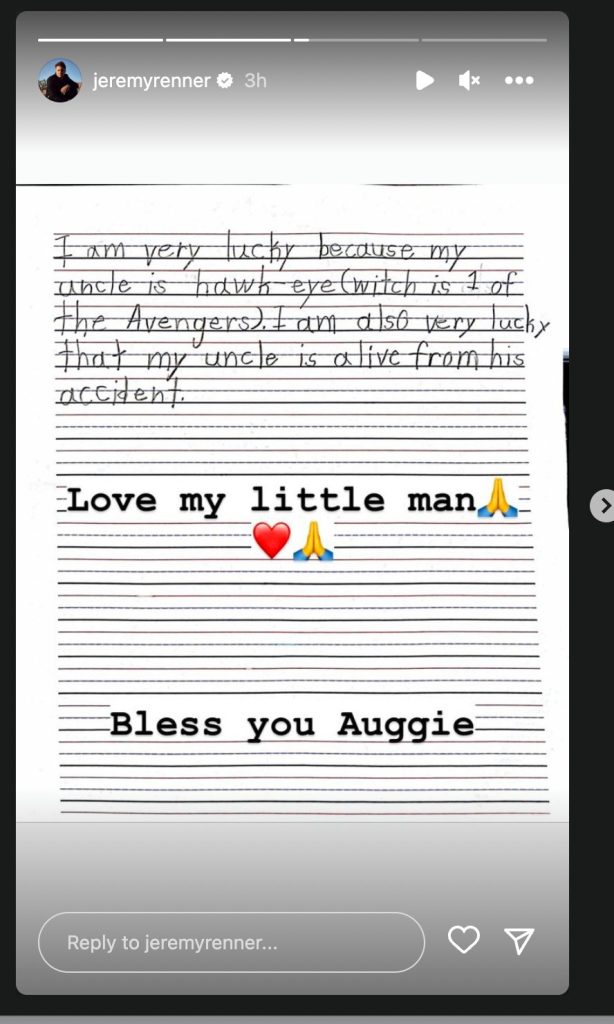 jeremyrenner 3h
I am very lucky because my
uncle is hawk-eye (witch is 1 of
the Avengers). I am also very lucky
that my uncle is alive from his
accident.
Love my little man🙏
❤️🙏
Bless you Auggie
Reply to jeremyrenner...